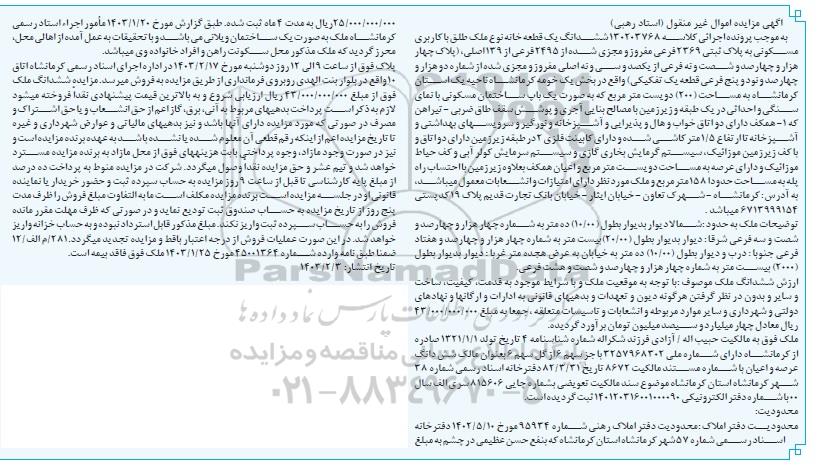 آگهی مزایده اموال غیر منقول (اسناد رهنی)
به موجب پرونده اجرائی کلاسه ۱۳۰۲۰۳۷۶۸ ششدانگ یک قطعه خانه نوع ملک طلق با کاربری
مسکونی به پلاک ثبتی ۲۳۶۹ فرعی مفروز و مجزی شده از ۲۴۹۵ فرعی از ۱۳۹ اصلی، (پلاک چهار
هزار و چهارصد و شصت و نه فرعی از یکصد و سی و نه اصلی مفروز و مجزی شده از شماره دو هزار و
چهارصد و نود و پنج فرعی قطعه یک تفکیکی) واقع در بخش یک حومه کرمانشاه ناحیه یک استان
کرمانشاه به مساحت (۲۰۰) دویست متر مربع که به صورت یک باب ساختمان مسکونی با نمای
سنگی و احداثی در یک طبقه و زیرزمین با مصالح بنایی آجری و پوششی سقف طاق ضربی - تیرآهن
که ۱- همکف دارای دو اتاق خواب و هال و پذیرایی و آشپزخانه و نورگیر و سرویسهای بهداشتی و
آشپزخانه تا ارتفاع ۱/۵ متر کاشی شده و دارای کابینت فلزی ۲ در طبقه زیرزمین دارای دو اتاق و
با کف زیرزمین موزائیک، سیستم گرمایش بخاری گازی و سیستم سرمایش کولر آبی و کف حیاط
موزائیک و دارای عرصه به مساحت دویست متر مربع و اعیان همکف بعلاوه زیرزمین با احتساب راه
پله به مساحت حدودا ۱۵۸ متر مربع و ملک مورد نظر دارای امتیازات و انشعابات معمول میباشد،
به آدرس: کرمانشاه - شهرک تعاون - خیابان ایثار - خیابان بانک تجارت قدیم پلاک ۱۹ کدپستی
۶۷۱۳۹۹۹۱۵۴ میباشد.
توضیحات ملک به حدود: شمالا دیوار بدیوار بطول (۱۰/۰۰) ده متر به شماره چهار هزار و چهارصد و
شصت و سه فرعی شرقا: دیوار بدیوار بطول (۲۰/۰۰) بیست متر به شماره چهار هزار و چهارصد و هفتاد
فرعی جنوبا: درب و دیوار بطول (۱۰/۰۰) ده متر به خیابان به عرض هجده متر غربا: دیوار بدیوار بطول
(۲۰۰۰) بیست متر به شماره چهار هزار و چهارصد و شصت و هشت فرعی
ارزش ششدانگ ملک موصوف: با توجه به موقعیت ملک و با شرایط موجود به قدمت، کیفیت، ساخت
و سایر و بدون در نظر گرفتن هرگونه دیون و تعهدات و بدهیهای قانونی به ادارات و ارگانها و نهادهای
دولتی و شهرداری و سایر موارد مربوطه و انشعابات و تاسیسات متعلقه، جمعا به مبلغ ۴۳/۰۰۰/۰۰۰/۰۰۰
ریال معادل چهار میلیارد و سیصد میلیون تومان برآورد گردیده.
ملک فوق به مالکیت حبیب اله / آزادی فرزند شکراله شماره شناسنامه ۴ تاریخ تولد ۱۳۲۱/۱/۱ صادره
از کرمانشاه دارای شماره ملی ۳۲۵۷۹۶۸۳۰۲ با جز سهم ۶ از کل سهم ۶ بعنوان مالک شش دانگ
عرصه و اعیان با شماره مستند مالکیت ۸۶۷۲ تاریخ ۸۲/۳/۳۱ دفترخانه اسناد رسمی شماره ۳۸
شهر کرمانشاه استان کرمانشاه موضوع سند مالکیت تعویضی بشماره چاپی ۸۱۵۶۰۶ سری الف سال
۰۰ با شماره دفتر الکترونیکی ۱۴۰۱۲۰۳۱۶۰۰۱۰۰۰۰۹۰ ثبت گردیده است.
محدودیت:
محدودیت دفتر املاک: محدودیت دفتر املاک رهنی شماره ۹۵۹۳۴ مورخ ۱۴۰۲/۵/۱۰ دفترخانه
اسناد رسمی شماره ۵۷ شهر کرمانشاه استان کرمانشاه که بنفع حسن عظیمی در چشم به مبلغ
۲۵/۰۰۰/۰۰۰/۰۰۰ ریال به مدت ۴ ماه ثبت شده. طبق گزارش مورخ ۱۴۰۳/۱/۲۰ مأمور اجراء اسناد رسمی
کرمانشاه ملک به صورت یک ساختمان ویلائی می باشد و با تحقیقات به عمل آمده از اهالی محل،
محرز گردید که ملک مذکور محل سکونت راهن و افراد خانواده وی میباشد.
پلاک فوق از ساعت ۹ الی ۱۲ روز دوشنبه مورخ ۱۴۰۳/۲/۱۷ در اداره اجرای اسناد رسمی کرمانشاه اتاق
۱۰ واقع در بلوار بنت الهدی روبروی فرمانداری از طریق مزایده به فروش میرسد. مزایده ششدانگ ملک
فوق از مبلغ ۴۳/۰۰۰/۰۰۰/۰۰۰ ریال ارزیابی شروع و به بالاترین قیمت پیشنهادی نقدا فروخته میشود
لازم به ذکر است پرداخت بدهیهای مربوط به آب، برق، گاز اعم از حق انشعاب و یا حق اشتراک و
مصرف در صورتی که مورد مزایده دارای آنها باشد و نیز بدهیهای مالیاتی و عوارض شهرداری و غیره
تا تاریخ مزایده اعم از اینکه رقم قطعی آن معلوم شده یا نشده باشد به عهده برنده مزایده است و
نیز در صورت وجود مازاد، وجوه پرداختی بابت هزینههای فوق از محل مازاد به برنده مزایده مسترد
خواهد شد و نیم عشر و حق مزایده نقدا وصول میگردد. شرکت در مزایده منوط به پرداخت ده درصد
از مبلغ پایه کارشناسی تا قبل از ساعت ۹ روز مزایده به حساب سپرده ثبت و حضور خریدار یا نماینده
قانونی او در جلسه مزایده است برنده مزایده مکلف است ما به التفاوت مبلغ فروش را ظرف مدت
پنج روز از تاریخ مزایده به حساب صندوق ثبت تودیع نماید و در صورتی که ظرف مهلت مقرر مانده
فروش را به حساب سپرده ثبت واریز نکند. مبلغ مذکور قابل استرداد نبوده و به حساب خزانه واریز
خواهد شد. در این صورت عملیات فروش از درجه اعتبار باقط و مزایده تجدید میگردد. ۲۸۱/م الف/۱۲
ضمنا طبق نامه وارده شماره ۴۵۰۰۱۳۶۴ مورخ ۱۴۰۳/۱/۲۵ ملک فوق فاقد بیمه است.
تاریخ انتشار: ۱۴۰۳/۲/۳
ParsNamadData
پایگاه اطلاع رسانی مناقصه و مزایده
۰۲۱-۸۸۳۴۹۶۷۰-۵